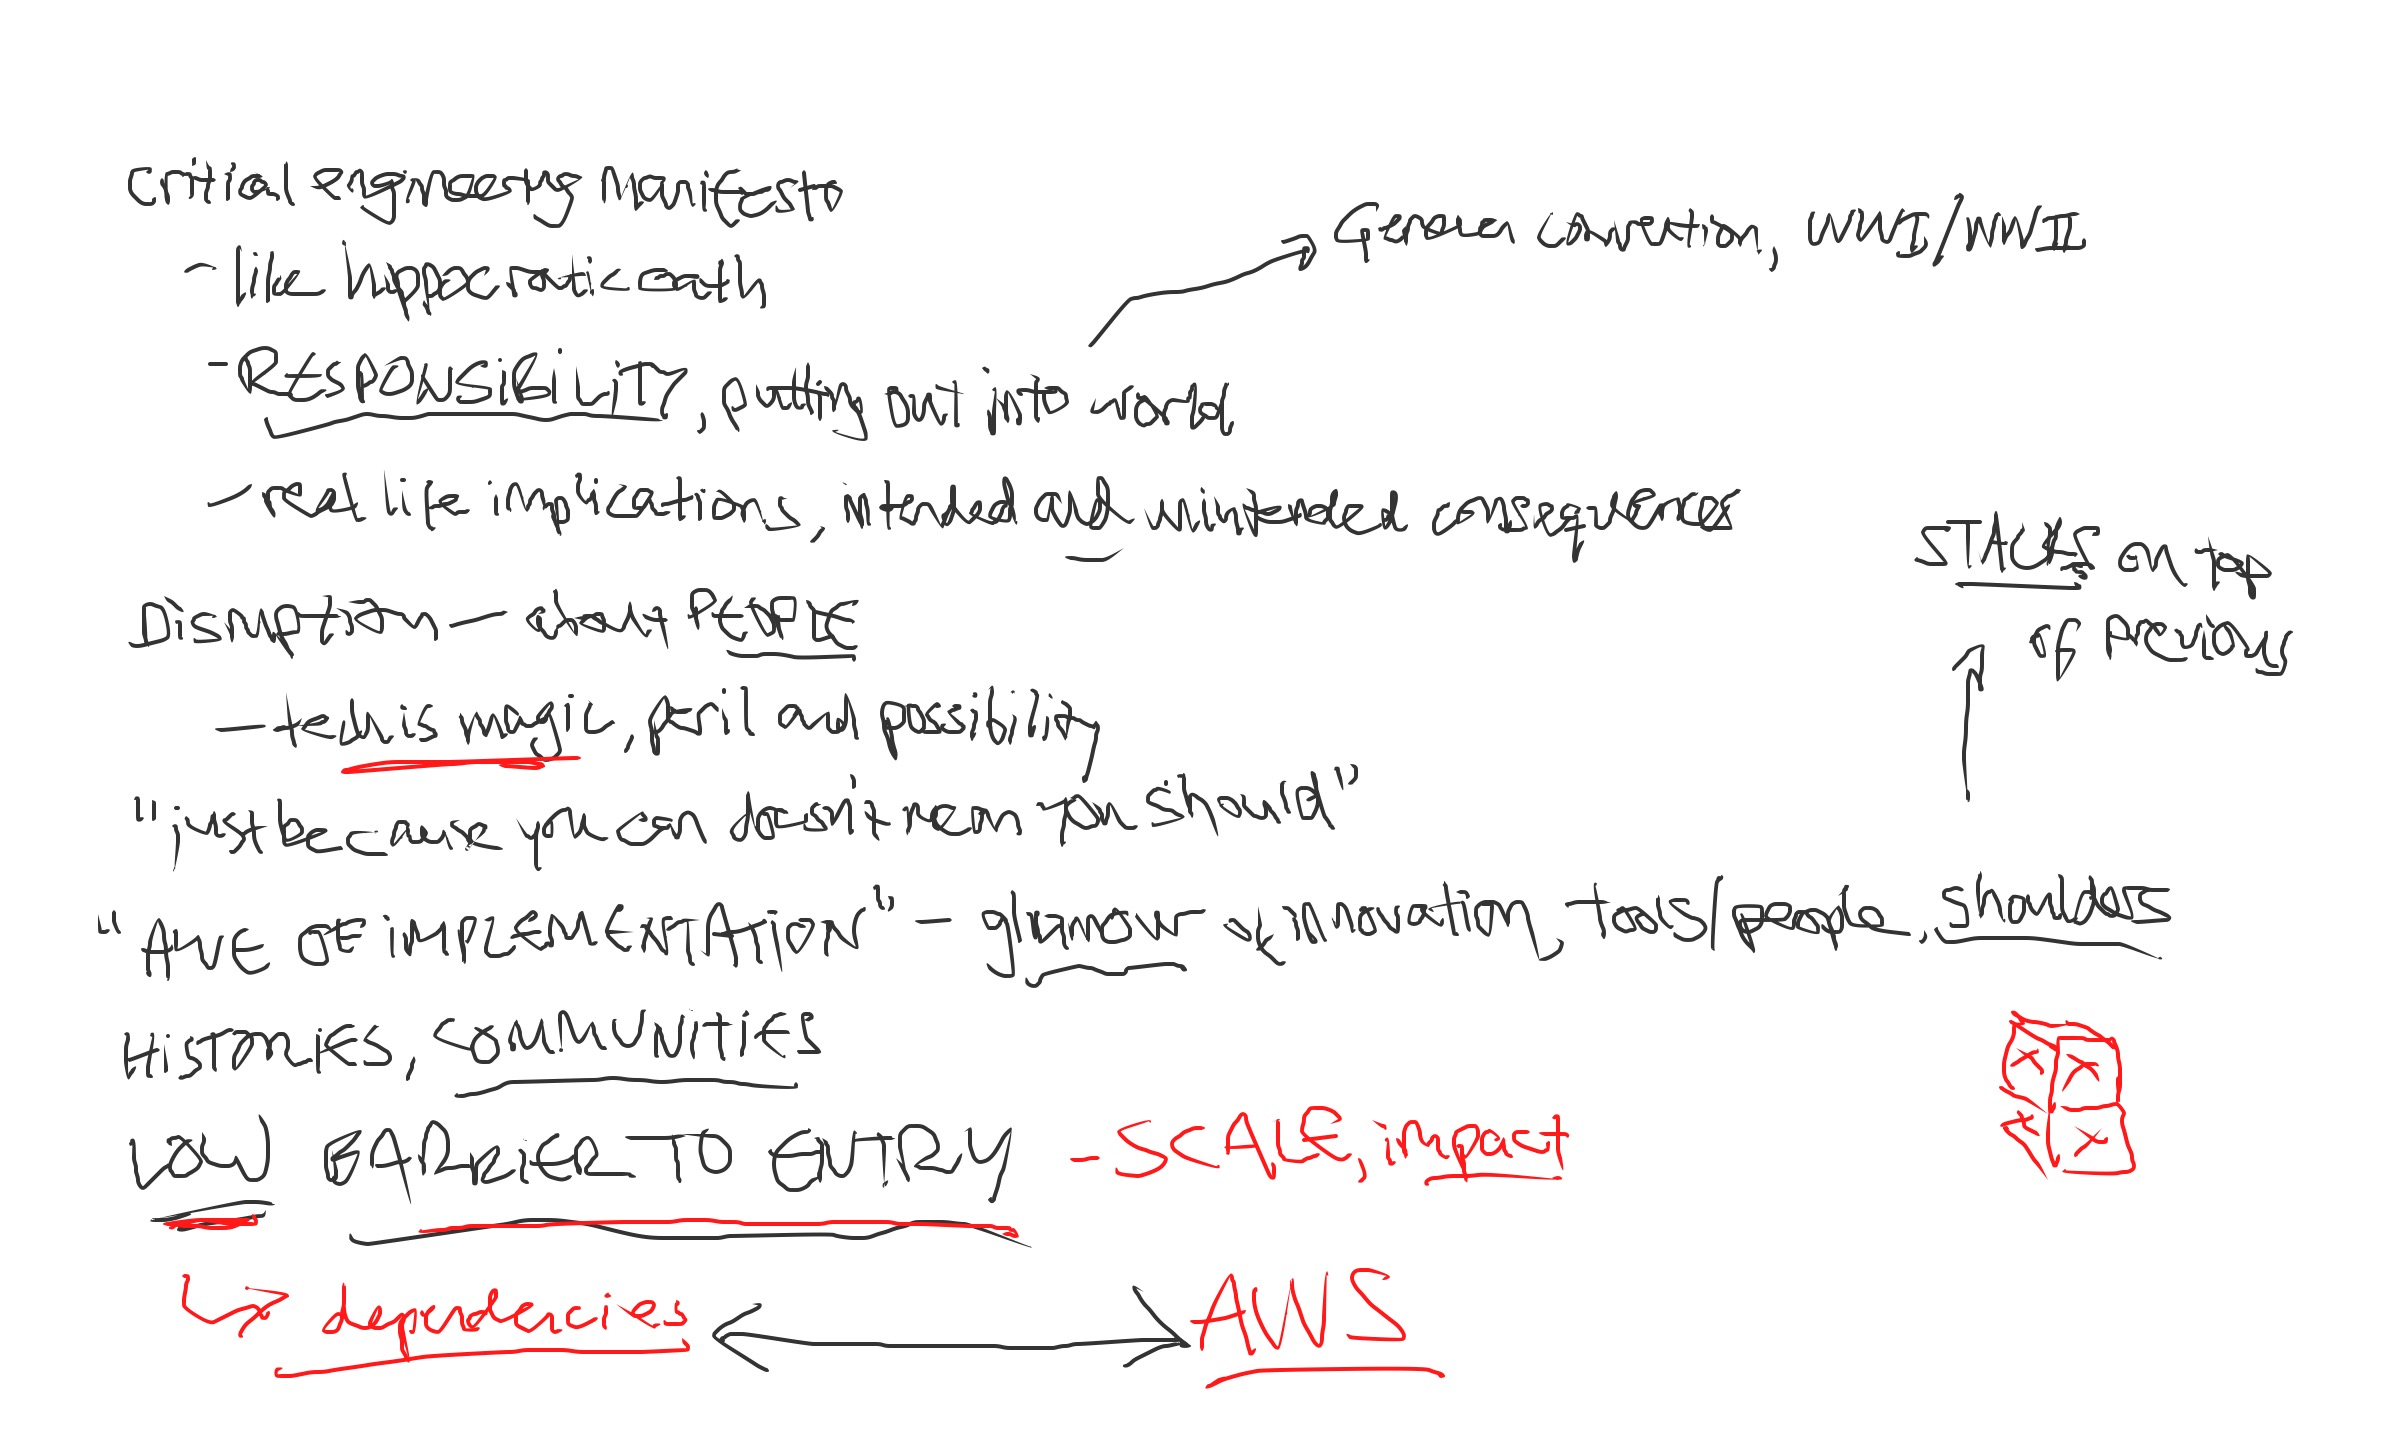 Critical engineering Manifesto
- like hippocratic oath
Geneva convention, WWI/WWII
- RESPONSIBILITY, putting out into world
- real life implications, intended and unintended consequences
STACKS on top
of previous
Disruption — about PEOPLE
— tech is magic, peril and possibility
"just because you can doesn't mean you should"
"AWE OF IMPLEMENTATION" - glamour of innovation, tools/people, shoulders
HISTORIES, COMMUNITIES
LOW BARRIER TO ENTRY - SCALE, impact
dependencies AWS